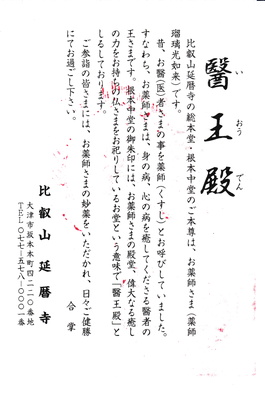 醫王殿
い おう でん
比叡山延暦寺の総本堂・根本中堂のご本尊は、お薬師さま（薬師
瑠璃光如来）です。
昔、お醫（医）者さまの事を薬師（くすし）とお呼びしていました。
すなわち、お薬師さまは、身の病、心の病を癒してくださる醫者の
王さまです。根本中堂の御朱印には、お薬師さまの殿堂、偉大なる癒し
の力をお持ちの仏さまをお祀りしているお堂という意味で「醫王殿」と
しるしております。
ご参詣の皆さまには、お薬師さまの妙薬をいただかれ、日々ご健勝
にてお過ごし下さい。
合掌
比叡山 延暦寺
大津市坂本本町四二二〇番地
TEL〇七七-五七八-〇〇〇一番